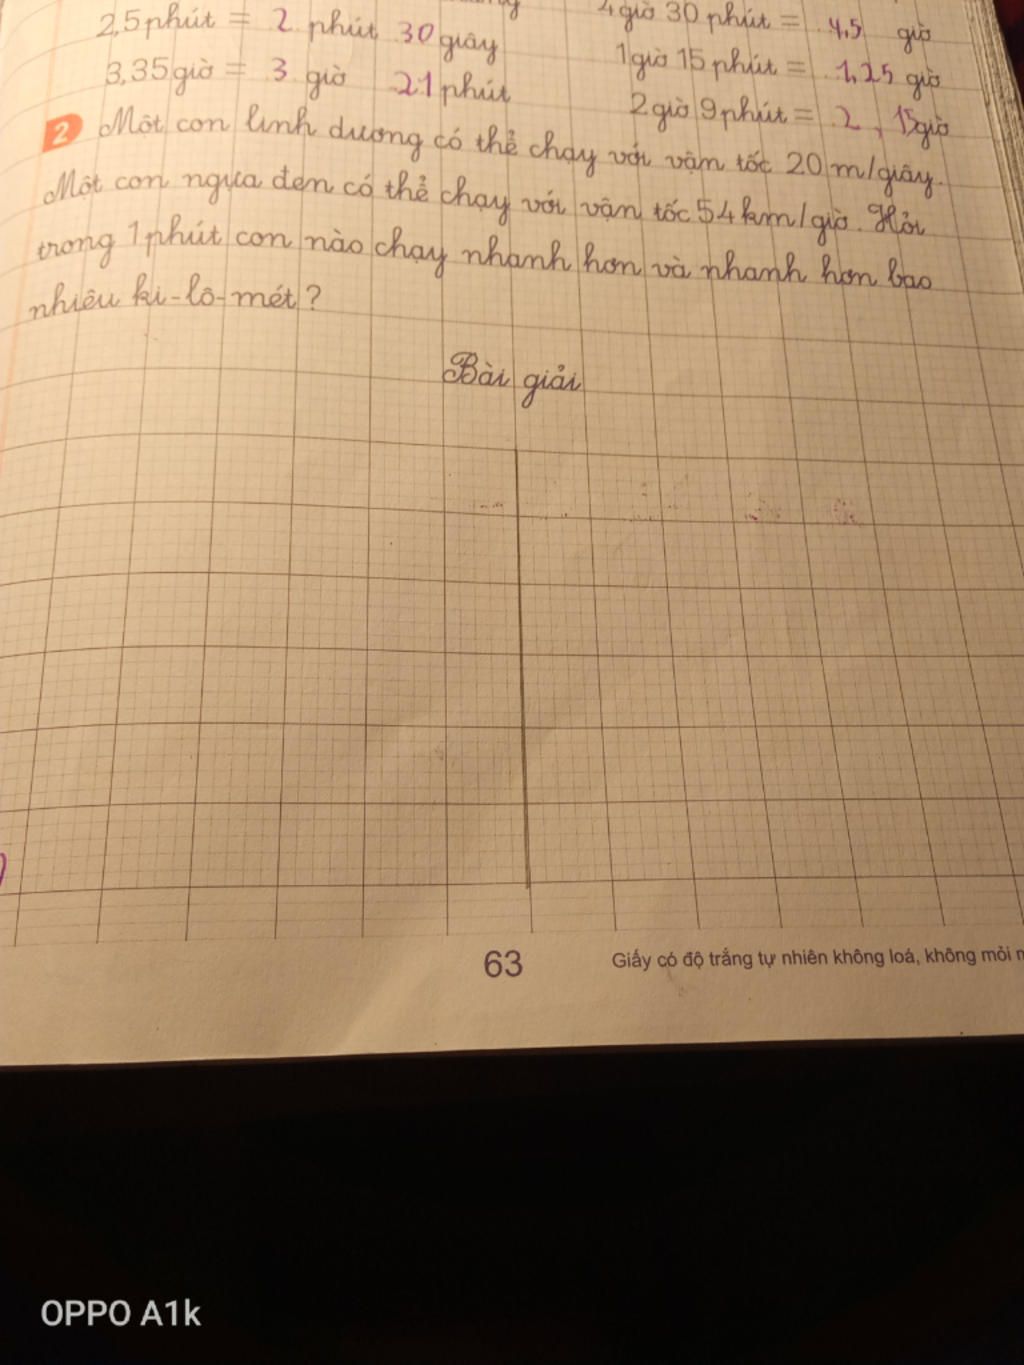 2,5 phút = 2 phút 30 giây
4 giờ 30 phút = 4,5 giờ
3,35 giờ = 3 giờ 21 phút
1 giờ 15 phút = 1,25 giờ
2 giờ 9 phút = 2,15 giờ
2 Một con linh dương có thể chạy với vận tốc 20 m/giây.
Một con ngựa đen có thể chạy với vận tốc 54 km/giờ. Hỏi
trong 1 phút con nào chạy nhanh hơn và nhanh hơn bao
nhiêu ki-lô-mét?
Bài giải
63
Giấy có độ trắng tự nhiên không loá, không mỏi
OPPO A1k